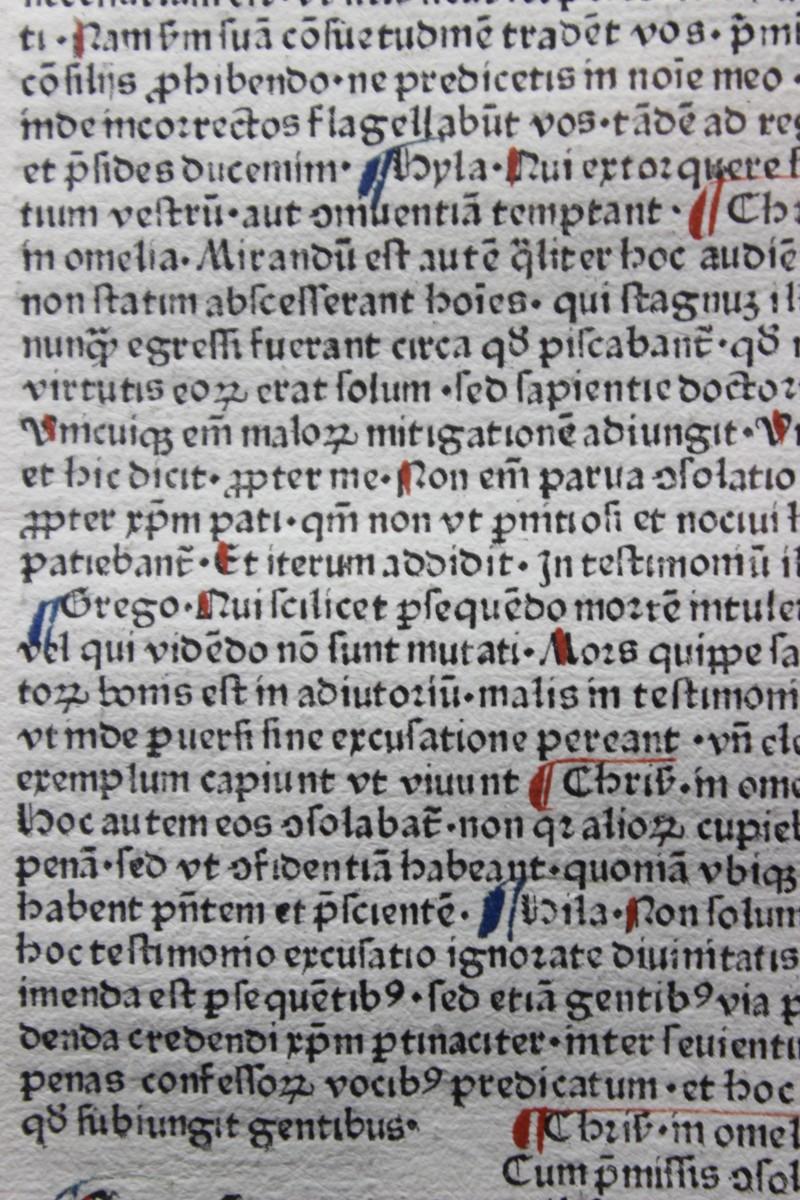 ti · Nam ẜm ſuā cōſuetudinē tradēt vos · p̄mi
cōſilijs ꝓhibendo · ne predicetis in noīe meo ·
inde incorrectos flagellabūt vos · tādē ad reg
et p̄ſides ducemini · Hyla · Qui extorquere ſ
tium veſtrū · aut ꝯniuentiā temptant · Chr
in omelia · Mirandū eſt autē q̄liter hoc audiē
non ſtatim abſceſſerant hoīes · qui ſtagnuꝫ il
nunq̄ȝ egreſſi fuerant circa qđ piſcabant̄ · qđ
virtutis eoꝝ erat ſolum · ſed ſapientie doctor
Vnicuiqꝫ em̄ maloꝝ mitigationē adiungit · Vn
et hic dicit · ꝓpter me · Non em̄ parua ꝯſolatio
ꝓpter xp̄m pati · qm̄ non vt ꝑnitioſi et nociui h
patiebant̄ · Et iterum addidit · In teſtimoniū il
Grego · Qui ſcilicet ꝑſequēdo mortē intuler
vel qui vidēdo nō ſunt mutati · Mors quippe ſa
toꝝ bonis eſt in adiutoriū · malis in teſtimoni
vt inde ꝑuerſi ſine excuſatione pereant · vn̄ ele
exemplum capiunt vt viuunt Chriẜ · in ome
Hoc autem eos ꝯſolabat̄ · non qꝛ alioꝝ cupieb
penā · ſed vt ꝯfidentiā habeant · quoniā vbiqꝫ
habent pn̄tem et p̄ſcientē · Hila · Non ſolum
hoc teſtimonio excuſatio ignorate diuinitatis
imenda eſt ꝑſequētibꝰ · ſed etiā gentibꝰ via p
denda credendi xp̄m ꝑtinaciter · inter ſeuienti
penas confeſſoꝝ vocibꝰ predicatum · et hoc
qđ ſubiungit gentibus · Chriẜ · in omel
Cum p̄miſſis ꝯſol